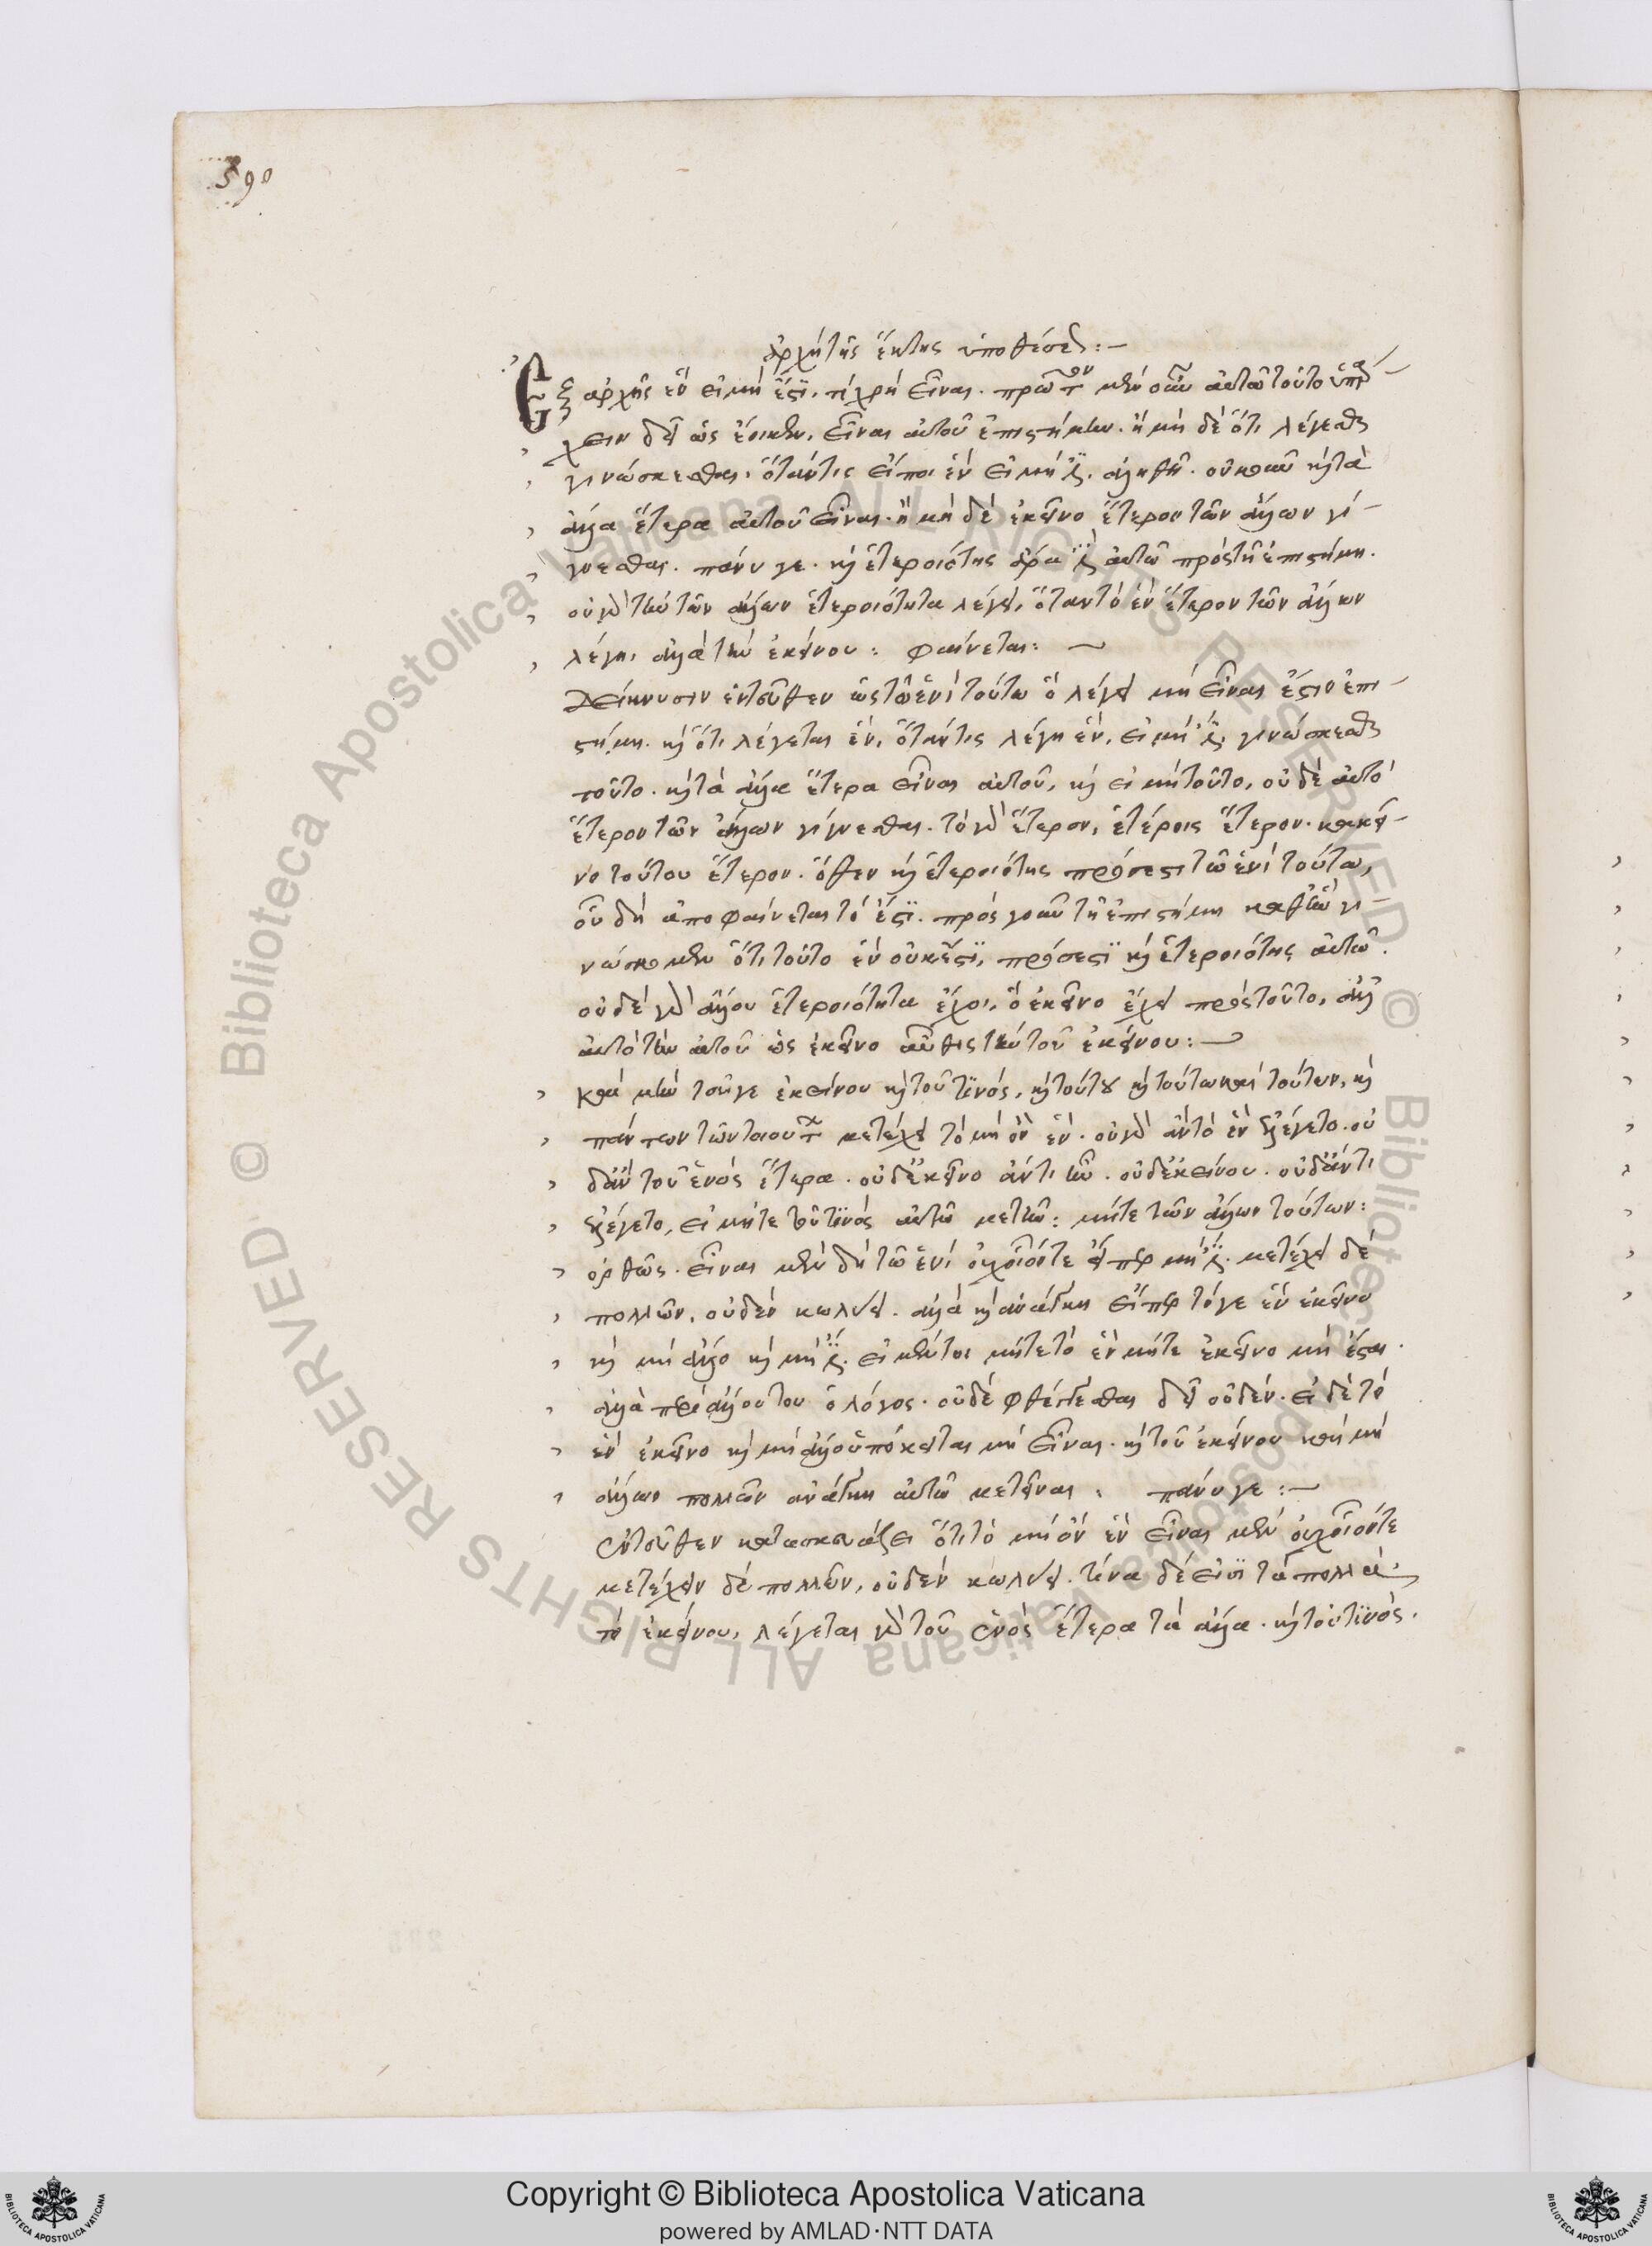 590
ἀρχὴ τῆς ἕκτης ὑποθέσεως :—
Ἐξ ἀρχῆς ἓν εἰ μή ἐστι, τί χρὴ εἶναι. πρῶτον μὲν οὖν αὐτῶ τοῦτο ὑπάρ
χειν δεῖ ὡς ἔοικεν, εἶναι αὐτοῦ ἐπιστήμην. ἢ μὴ δὲ ὅτι λέγεται
γινώσκεσθαι, ὅτάν τις εἴποι ἓν εἰ μή ἐστιν. ἀληθῆ. οὐκοῦν καὶ τὰ
ἄλλα ἕτερα αὐτοῦ εἶναι. ἢ μὴ δὲ ἐκεῖνο ἕτερον τῶν ἄλλων γί
γνεσθαι. πάνυ γε. καὶ ἑτεροιότης ἄρα ἐστὶν αὐτῶ πρὸς τῆ ἐπιστήμη.
οὐ γὰρ τὴν τῶν ἄλλων ἑτεροιότητα λέγει, ὅταν τὸ ἓν ἕτερον τῶν ἄλλων
λέγη, ἀλλὰ τὴν ἐκείνου : φαίνεται : ~
Δείκνυσιν ἐντεῦθεν ὡς τῶ ἑνὶ τούτω ὃ λέγει μὴ εἶναι ἔστιν ἐπι
στήμη. καὶ ὅτι λέγεται ἓν, ὅτάν τις λέγη ἓν, εἰ μή ἐστι, γινώσκεσθαι
τοῦτο. καὶ τὰ ἄλλα ἕτερα εἶναι αὐτοῦ, καὶ εἰ μὴ τοῦτο, οὐδὲ αὐτὸ
ἕτερον τῶν ἄλλων γίγνεσθαι. τὸ γὰρ ἕτερον, ἑτέροις ἕτερον. κἀκεῖ
νο τούτου ἕτερον. ὅθεν καὶ ἑτεροιότης πρόσεστι τῶ ἑνὶ τούτω,
οὗ δὴ ἀποφαίνεται τό ἐστι. πρὸς γοῦν τῆ ἐπιστήμη καθ' ἣν γι
νώσκομεν ὅτι τοῦτο ἓν οὐκ ἔστι, πρόσεστι καὶ ἑτεροιότης αὐτῶ.
οὐδὲ γὰρ ἄλλου ἑτεροιότητα ἔχοι, ὃ ἐκεῖνο ἔχει πρὸς τοῦτο, ἀλλ'
αὐτὸ τὴν αὑτοῦ ὡς ἐκεῖνο αὖθις τὴν τοῦ ἐκείνου : —
Καὶ μὴν τοῦ γε ἐκείνου καὶ τοῦ τινός, καὶ τούτου καὶ τούτω καὶ τούτων, καὶ
πάντων τῶν τοιούτων μετέχει τὸ μὴ ὂν ἕν. οὐ γὰρ ἂν τὸ ἓν ἐλέγετο. οὐ
δ' ἂν τοῦ ἑνὸς ἕτερα. οὐδ' ἐκείνω ἄν τι ἦν. οὐδ' ἐκείνου. οὐδ' ἄν τι
ἐλέγετο, εἰ μήτε τοῦ τινὸς αὐτῶ μετῆν : μήτε τῶν ἄλλων τούτων :
ὀρθῶς. εἶναι μὲν δὴ τῶ ἑνὶ οὐχ οἷόν τε εἴπερ μή ἐστι. μετέχει δὲ
πολλῶν, οὐδὲν κωλύει. ἀλλὰ καὶ ἀνάγκη εἴπερ τό γε ἓν ἐκεῖνο
καὶ μὴ ἄλλο καὶ μή ἐστιν. εἰ μέντοι μήτε τὸ ἓν μήτε ἐκεῖνο μὴ ἔσται.
ἀλλὰ περὶ ἄλλου του ὁ λόγος. οὐδὲ φθέγγεσθαι δεῖ οὐδέν. εἰ δὲ τὸ
ἓν ἐκεῖνο καὶ μὴ ἄλλο ὑπόκειται μὴ εἶναι. καὶ τοῦ ἐκείνου καὶ μὴ
ἄλλων πολλῶν ἀνάγκη αὐτῶ μετεῖναι : πάνυ γε : —
ἐντεῦθεν κατασκευάζει ὅτι τὸ μὴ ὂν ἓν εἶναι μὲν οὐχ οἷόν τε
μετέχειν δὲ πολλῶν, οὐδὲν κωλύει. τίνα δέ εἰσι τὰ πολλά.
τὸ ἐκείνου, λέγεται γὰρ τοῦ ἑνὸς ἕτερα τὰ ἄλλα. καὶ τὸ τινός.
Copyright © Biblioteca Apostolica Vaticana
powered by AMLAD·NTT DATA